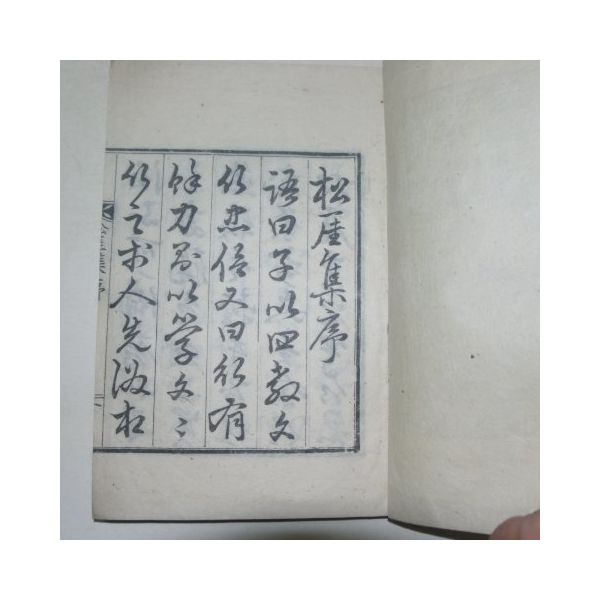 松崖集序
語曰子以四敎文
行忠信又曰行有
餘力則以學文文
行之於人先後本